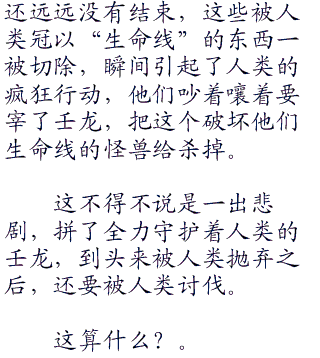 还远远没有结束，这些被人
类冠以“生命线”的东西一
被切除，瞬间引起了人类的
疯狂行动，他们吵着嚷着要
宰了壬龙，把这个破坏他们
生命线的怪兽给杀掉。
这不得不说是一出悲
剧，拼了全力守护着人类的
壬龙，到头来被人类抛弃之
后，还要被人类讨伐。
这算什么？。